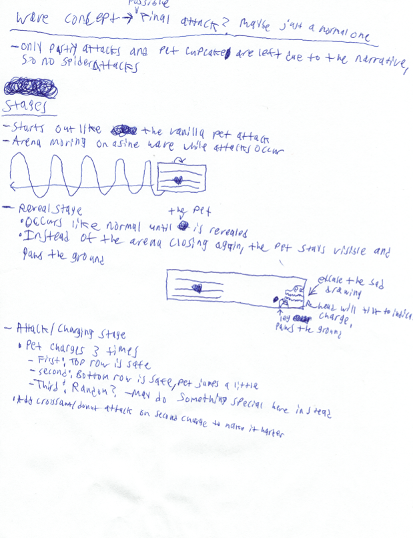 possible
Wave concept → final attack? Maybe just a normal one
- Only partly attacks and pet cupcake are left due to the narrative,
so no spider attacks
Stages
- Starts out like the vanilla pet attack
- Arena moving on a sine wave while attacks occur
- Reveal stage
the pet
• Occurs like normal until is revealed
• Instead of the arena closing again, the pet stays visible and
paws the ground
excuse the bad
drawing
head will tilt to indicate
charge
leg
paws the ground
- Attack/Charging stage
• Pet charges 3 times
- First: Top row is safe
- Second: Bottom row is safe, pet jumps a little
- Third: Random? - May do something special here instead
• Add croissant/donut attack on second charge to make it harder